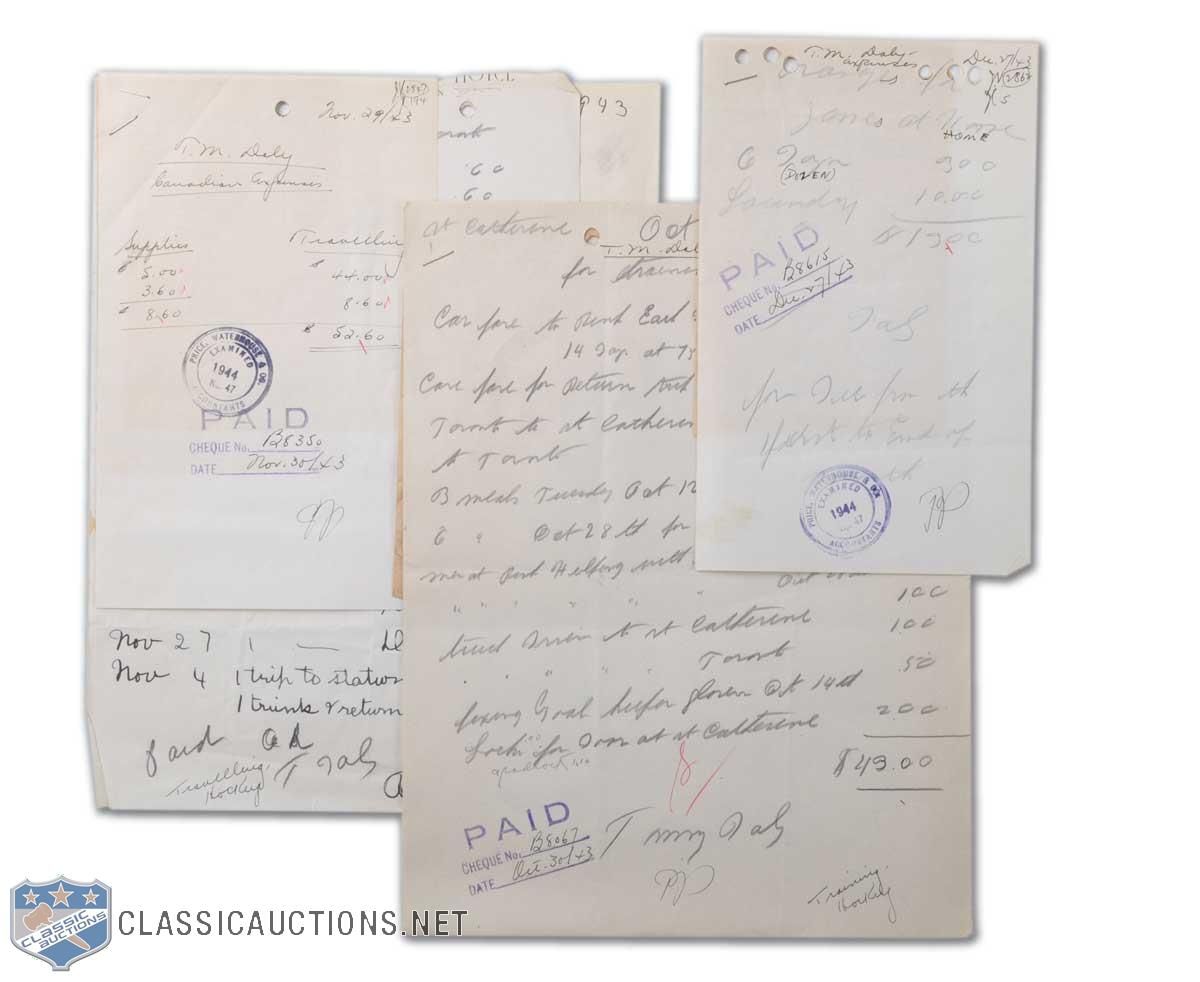 Nov. 29/43
T.M. Daly
Canadian Expenses
Supplies Travelling
$ 5.00 $ 44.00
3.60 8.60
$ 8.60 $ 52.60
PRICE, WATERHOUSE & CO.
EXAMINED
1944
No. 47
ACCOUNTANTS
PAID
CHEQUE No. B8350
DATE Nov. 30/43
Nov 27 1 —
Nov 4 1 trip to station
1 trunk & return
paid
T Daly
Travelling
Hockey
HOTEL
.60
.60
943
T.M. Daly Dec. 27/43
expenses 2867
Oranges
Games at Home
HOME
6 Dozen 900
(DOZEN)
Laundry 10.00
$ 19.00
PAID
CHEQUE No. B8615
DATE Dec. 27/43
Daly
for Dec from th
First to End of
PRICE, WATERHOUSE & CO.
EXAMINED
1944
ACCOUNTANTS
at Catherine Oct
T.M. Daly
for
Car fare to Rink Each
14 Days at 75
Care fare for Return
Toronto to at Catherine
to Toronto
3 meals Tuesday Oct 12
6 " Oct 28th for
men at Rink Helping with
" " " " " " 1 00
truck Driver to at Catherine 1.00
" " " Toronto .50
fixing Goal keeper gloves Oct 14th
Locks for Door at at Catherine 2.00
$ 43.00
PAID
CHEQUE No. B8067
DATE Oct. 30/43
Timmy Daly
Training
Hockey
CLASSIC AUCTIONS
CLASSICAUCTIONS.NET